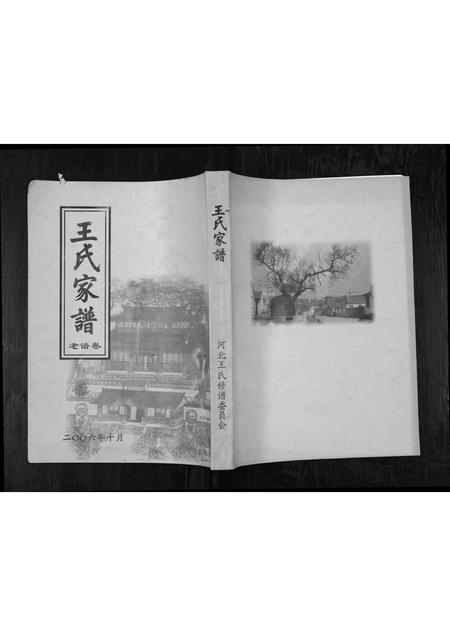 王氏家譜
老谱卷
二〇〇六年十月
王氏家譜
河北王氏修谱委员会